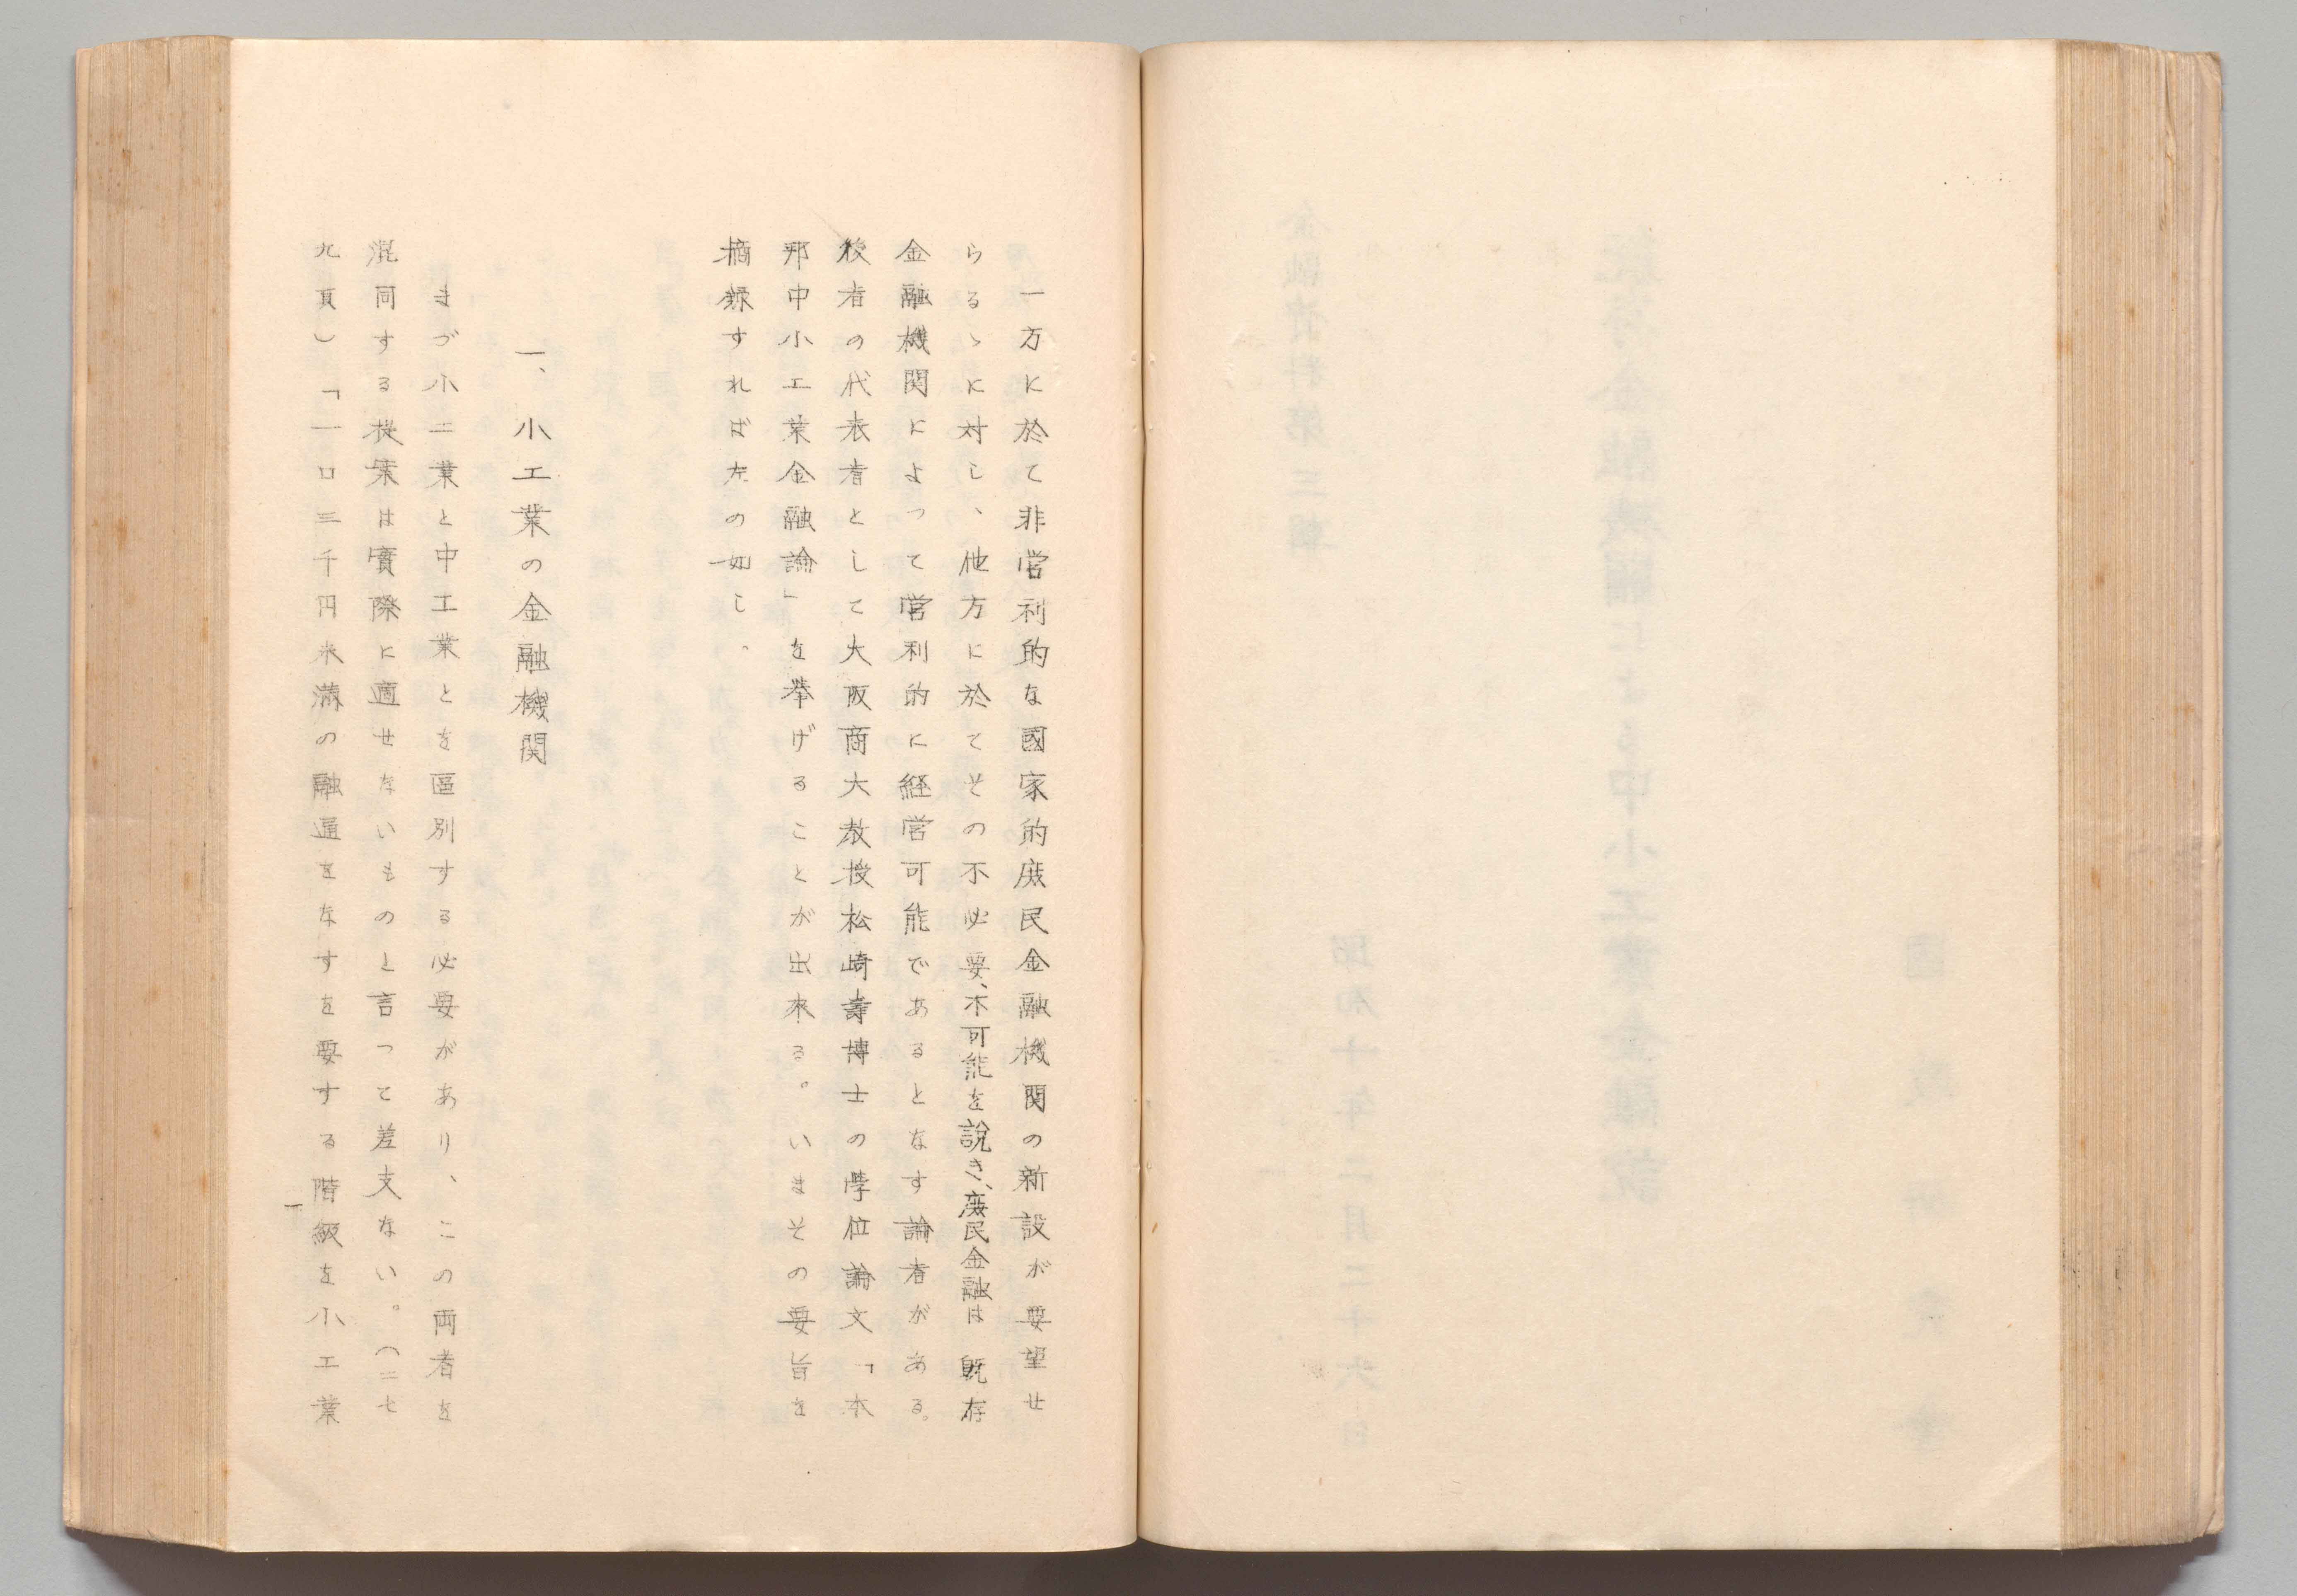 一方に於て非営利的な國家的庶民金融機関の新設が要望せ
らるゝに対し、他方に於てその不必要、不可能を說き、庶民金融は既存
金融機関によって営利的に経営可能であるとなす論者がある。
後者の代表者として大阪商大教授松崎壽博士の学位論文「本
邦中小工業金融論」を挙げることが出来る。いまその要旨を
摘録すれば左の如し。
一、小工業の金融機関
まづ小工業と中工業とを區別する必要があり、この両者を
混同する提案は實際に適せないものと言って差支ない。(二七
九頁)「一口三千円未満の融通をなすを要する階級を小工業
一
金融資料第三輯
昭和十年二月二十六日